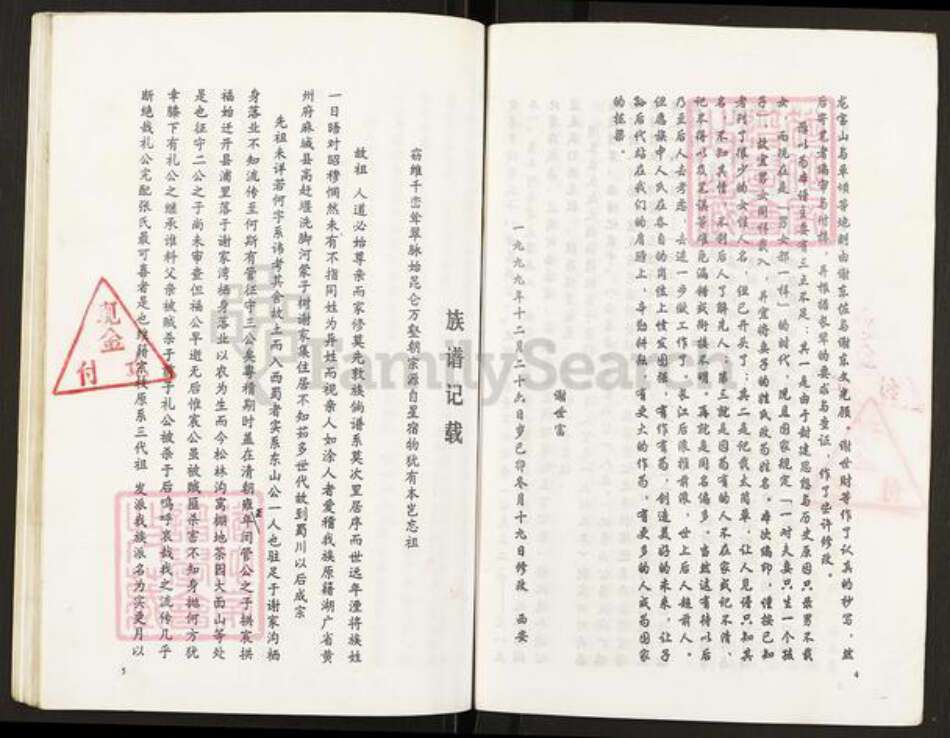 龙宝山与单项等地则由谢东佐与谢东文光顾。谢世财等作了认真的抄写，然
后寄笔者编审与付梓，并根据长辈的要求与查证，作了些许修改。
女，而现在是「男女都一样」的时代，现且国家规定「一对夫妻只生一个孩
子」，故宜男女同样载入，并宜将妻子的姓氏改为姓名。本次编印，谨按已知
者刊了很少的女性人名，但已开头了；其二是记载太简单，让人见谱只知其
名，不知其情，不利后人了解先人；第三就是因为有的人不在家或记不清、
乃至后人去考虑、去进一步做工作了。长江后浪推前浪，世上后人超前人。
但愿族中人氏在各自的岗位上愤发图强，有作有为，创造美好的未来，让子
孙后代站在我们的肩膀上，辛勤耕耘，有更大的作为，有更多的人成为国家
的栋梁。
一九九九年十二月二十六日岁已卯冬月十九日修改 西安
谢世富
4
族谱记载
窃维千峦耸翠脉始昆仑万壑朝宗源自星宿物犹有本岂忘祖
故祖 人道必始尊亲而家修莫先敦族倘谱系莫次里居序而世远年湮将族姓
一日晤对昭穆惘然未有不指同姓为异姓而视亲人如涂人者爱稽我族原籍湖广省黄
州府麻城县高赶堰洗脚河蒙子树谢家集住居不知茹多世代故到蜀川以后成宗
先祖未详若何字系讳考其舍故土而入西蜀者实系东山公一人也驻足于谢家沟栖
身落业不知流传至何斯有管征守三公矣粤稽期时盖在清朝雍正年间管公之子拱宸拱
福始迁开县浦里落于谢家湾栖身落业以农为生而今松林沟窝棚地茶园大面山等处
是也征守二公之子尚未审查但福公早逝无后惟宸公虽被贼匪杀害不知身抛何方犹
幸膝下有礼公之继承谁料父亲被贼杀于前子礼公被杀于后呜呼哀哉我之流传几乎
断绝哉礼公完配张氏最可喜者是也族籍宗枝原系三代祖 发派我族派名为实更月以
5
现金付讫
FamilySearch